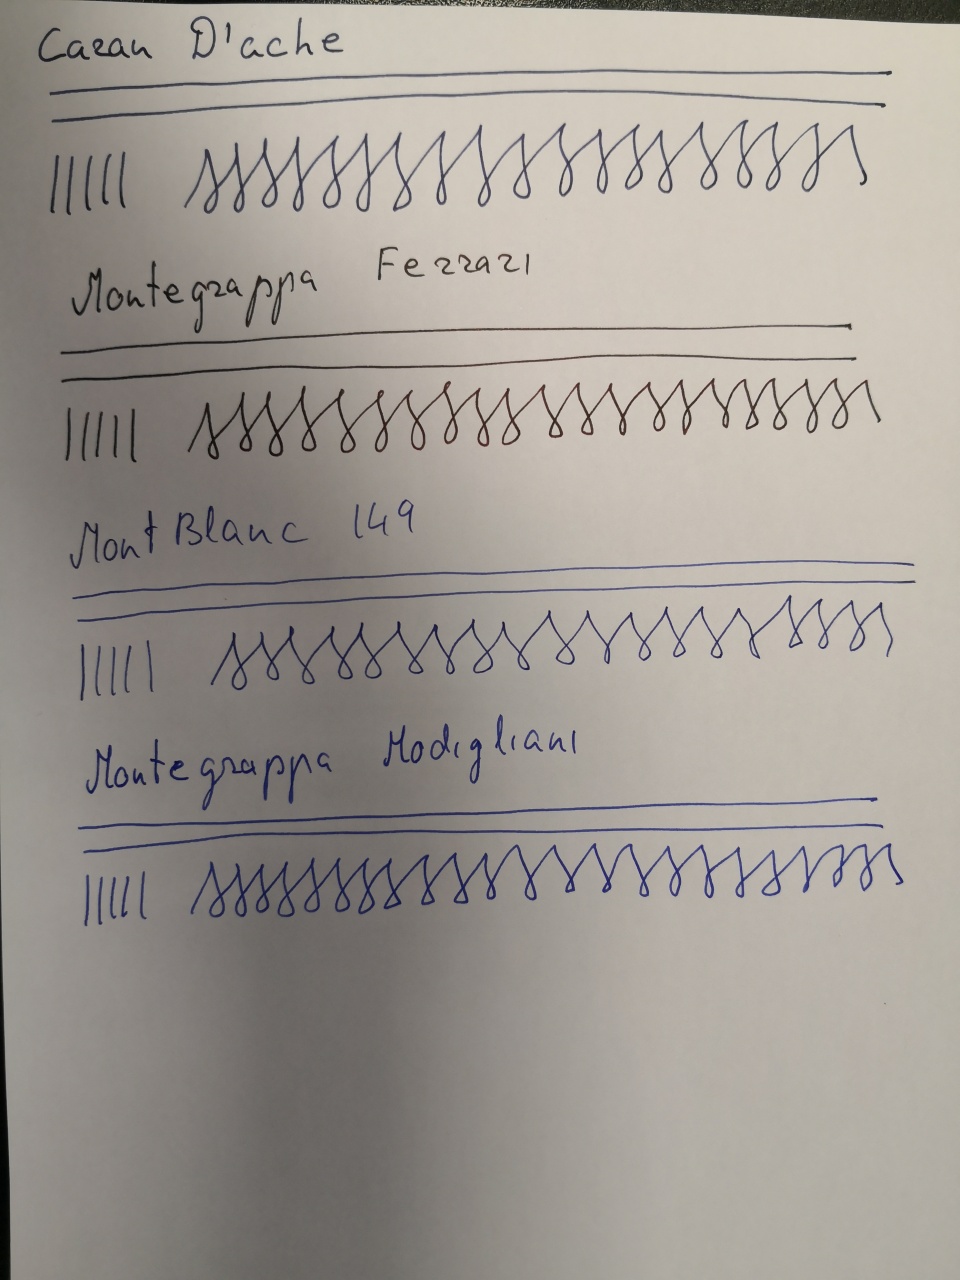 Caran D'ache
Montegrappa Ferrari
MontBlanc 149
Montegrappa Modigliani